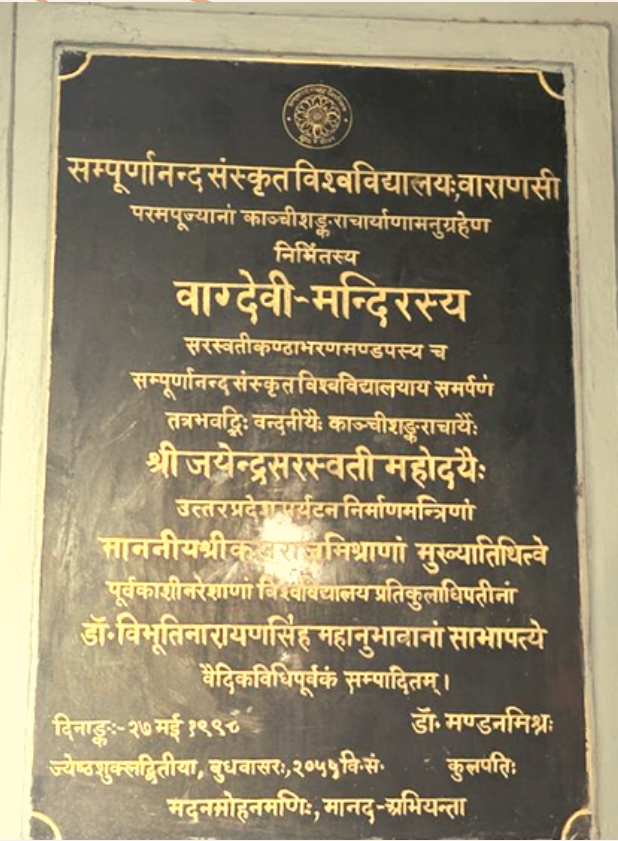 सम्पूर्णानन्द संस्कृत विश्वविद्यालयः, वाराणसी
परमपूज्यानां काञ्चीशङ्कराचार्याणामनुग्रहेण
निर्मितस्य
वाग्देवी-मन्दिरस्य
सरस्वतीकण्ठाभरणमण्डपस्य च
सम्पूर्णानन्द संस्कृत विश्वविद्यालयाय समर्पणं
तत्रभवद्भिः वन्दनीयैः काञ्चीशङ्कराचार्यैः
श्री जयेन्द्रसरस्वती महोदयैः
उत्तरप्रदेश पर्यटन निर्माणमन्त्रिणां
मुख्यातिथित्वे
पूर्वकाशीनरेशाणां विश्वविद्यालय प्रतिकुलाधिपतीनां
डॉ॰ विभूतिनारायणसिंह महानुभावानां साभापत्ये
वैदिकविधिपूर्वकं सम्पादितम् ।
दिनाङ्कः-२७ मई १९९८ डॉ॰ मण्डनमिश्रः
ज्येष्ठशुक्लद्वितीया, बुधवासरः, २०५५ वि॰सं॰ कुलपतिः
मदनमोहनमणिः, मानद-अभियन्ता